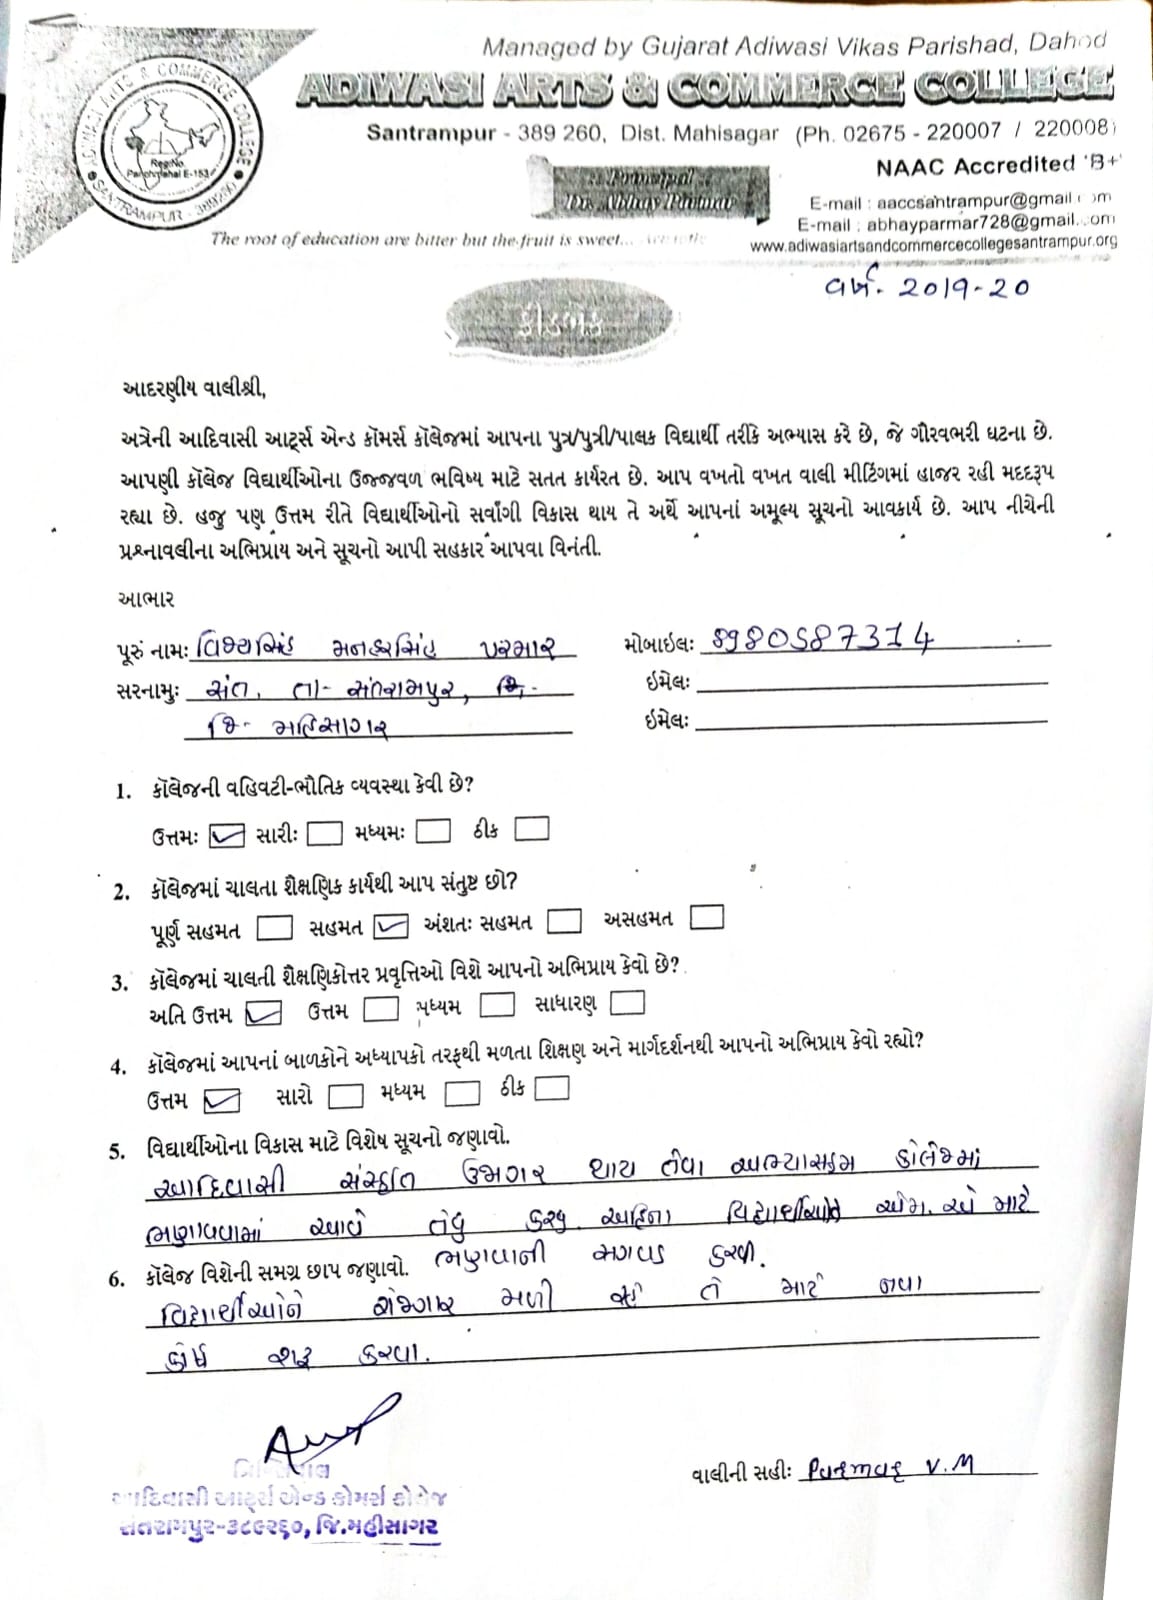 Managed by Gujarat Adiwasi Vikas Parishad, Dahod
ADIWASI ARTS & COMMERCE COLLEGE
Santrampur - 389 260, Dist. Mahisagar (Ph. 02675 - 220007 / 220008)
NAAC Accredited 'B+'
:: Principal ::
Dr. Abhay Parmar
E-mail : aaccsantrampur@gmail.com
E-mail : abhayparmar728@gmail.com
www.adiwasiartsandcommercecollegesantrampur.org
The root of education are bitter but the fruit is sweet...
ADIWASI ARTS & COMMERCE COLLEGE
Reg.No.
Panchmahal E-153
SANTRAMPUR - 389260
વર્ષ- 2019-20
ફીડબેક
આદરણીય વાલીશ્રી,
અત્રેની આદિવાસી આર્ટ્સ એન્ડ કૉમર્સ કૉલેજમાં આપના પુત્ર/પુત્રી/પાલક વિદ્યાર્થી તરીકે અભ્યાસ કરે છે, જે ગૌરવભરી ઘટના છે.
આપણી કૉલેજ વિદ્યાર્થીઓના ઉજ્જવળ ભવિષ્ય માટે સતત કાર્યરત છે. આપ વખતો વખત વાલી મીટિંગમાં હાજર રહી મદદરૂપ
રહ્યા છે. હજુ પણ ઉત્તમ રીતે વિદ્યાર્થીઓનો સર્વાંગી વિકાસ થાય તે અર્થે આપનાં અમૂલ્ય સૂચનો આવકાર્ય છે. આપ નીચેની
પ્રશ્નાવલીના અભિપ્રાય અને સૂચનો આપી સહકાર આપવા વિનંતી.
આભાર
પૂરું નામઃ વિજયસિંહ મનહરસિંહ પરમાર મોબાઇલઃ 8980587314
સરનામુઃ સંત, તા- સંતરામપુર, ઈમેલઃ
જિ- મહિસાગર ઈમેલઃ
1. કૉલેજની વહિવટી-ભૌતિક વ્યવસ્થા કેવી છે?
ઉત્તમઃ ✓ સારીઃ મધ્યમઃ ઠીક
2. કૉલેજમાં ચાલતા શૈક્ષણિક કાર્યથી આપ સંતુષ્ટ છો?
પૂર્ણ સહમત સહમત ✓ અંશતઃ સહમત અસહમત
3. કૉલેજમાં ચાલતી શૈક્ષણિકોત્તર પ્રવૃત્તિઓ વિશે આપનો અભિપ્રાય કેવો છે?
અતિ ઉત્તમ ✓ ઉત્તમ મધ્યમ સાધારણ
4. કૉલેજમાં આપનાં બાળકોને અધ્યાપકો તરફથી મળતા શિક્ષણ અને માર્ગદર્શનથી આપનો અભિપ્રાય કેવો રહ્યો?
ઉત્તમ ✓ સારો મધ્યમ ઠીક
5. વિદ્યાર્થીઓના વિકાસ માટે વિશેષ સૂચનો જણાવો.
આદિવાસી સંસ્કૃતિ ઉજાગર થાય તેવા અભ્યાસક્રમ કોલેજમાં
ભણાવવામાં આવે તેવું કરવુ. અહિના વિદ્યાર્થીઓને એમ. એ માટે
ભણવાની સગવડ કરવી.
6. કૉલેજ વિશેની સમગ્ર છાપ જણાવો.
વિદ્યાર્થીઓને રોજગાર મળી રહે તે માટે નવા
કોર્ષ શરૂ કરવા.
પ્રિન્સિપાલ
આદિવાસી આર્ટ્સ એન્ડ કોમર્સ કોલેજ
સંતરામપુર-૩૮૯૨૬૦, જિ.મહીસાગર
વાલીની સહીઃ Parmar V.M